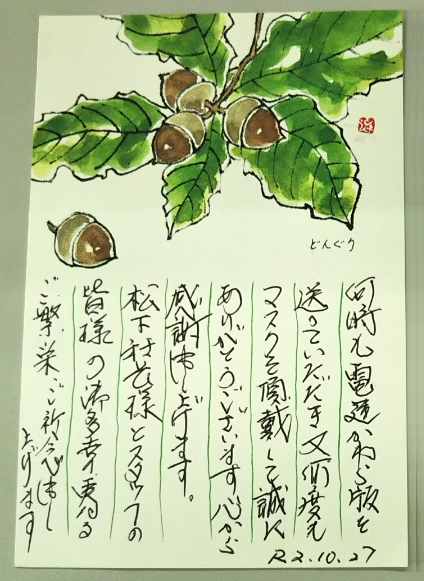 どんぐり
何時も電通かわら版を
送っていただき又何度も
マスクを頂戴して誠に
ありがとうございます心から
感謝申し上げます。
松下社長様とスタッフの
皆様の御多幸更なる
ご繁栄ご祈念申し
上げます
R2.10.27